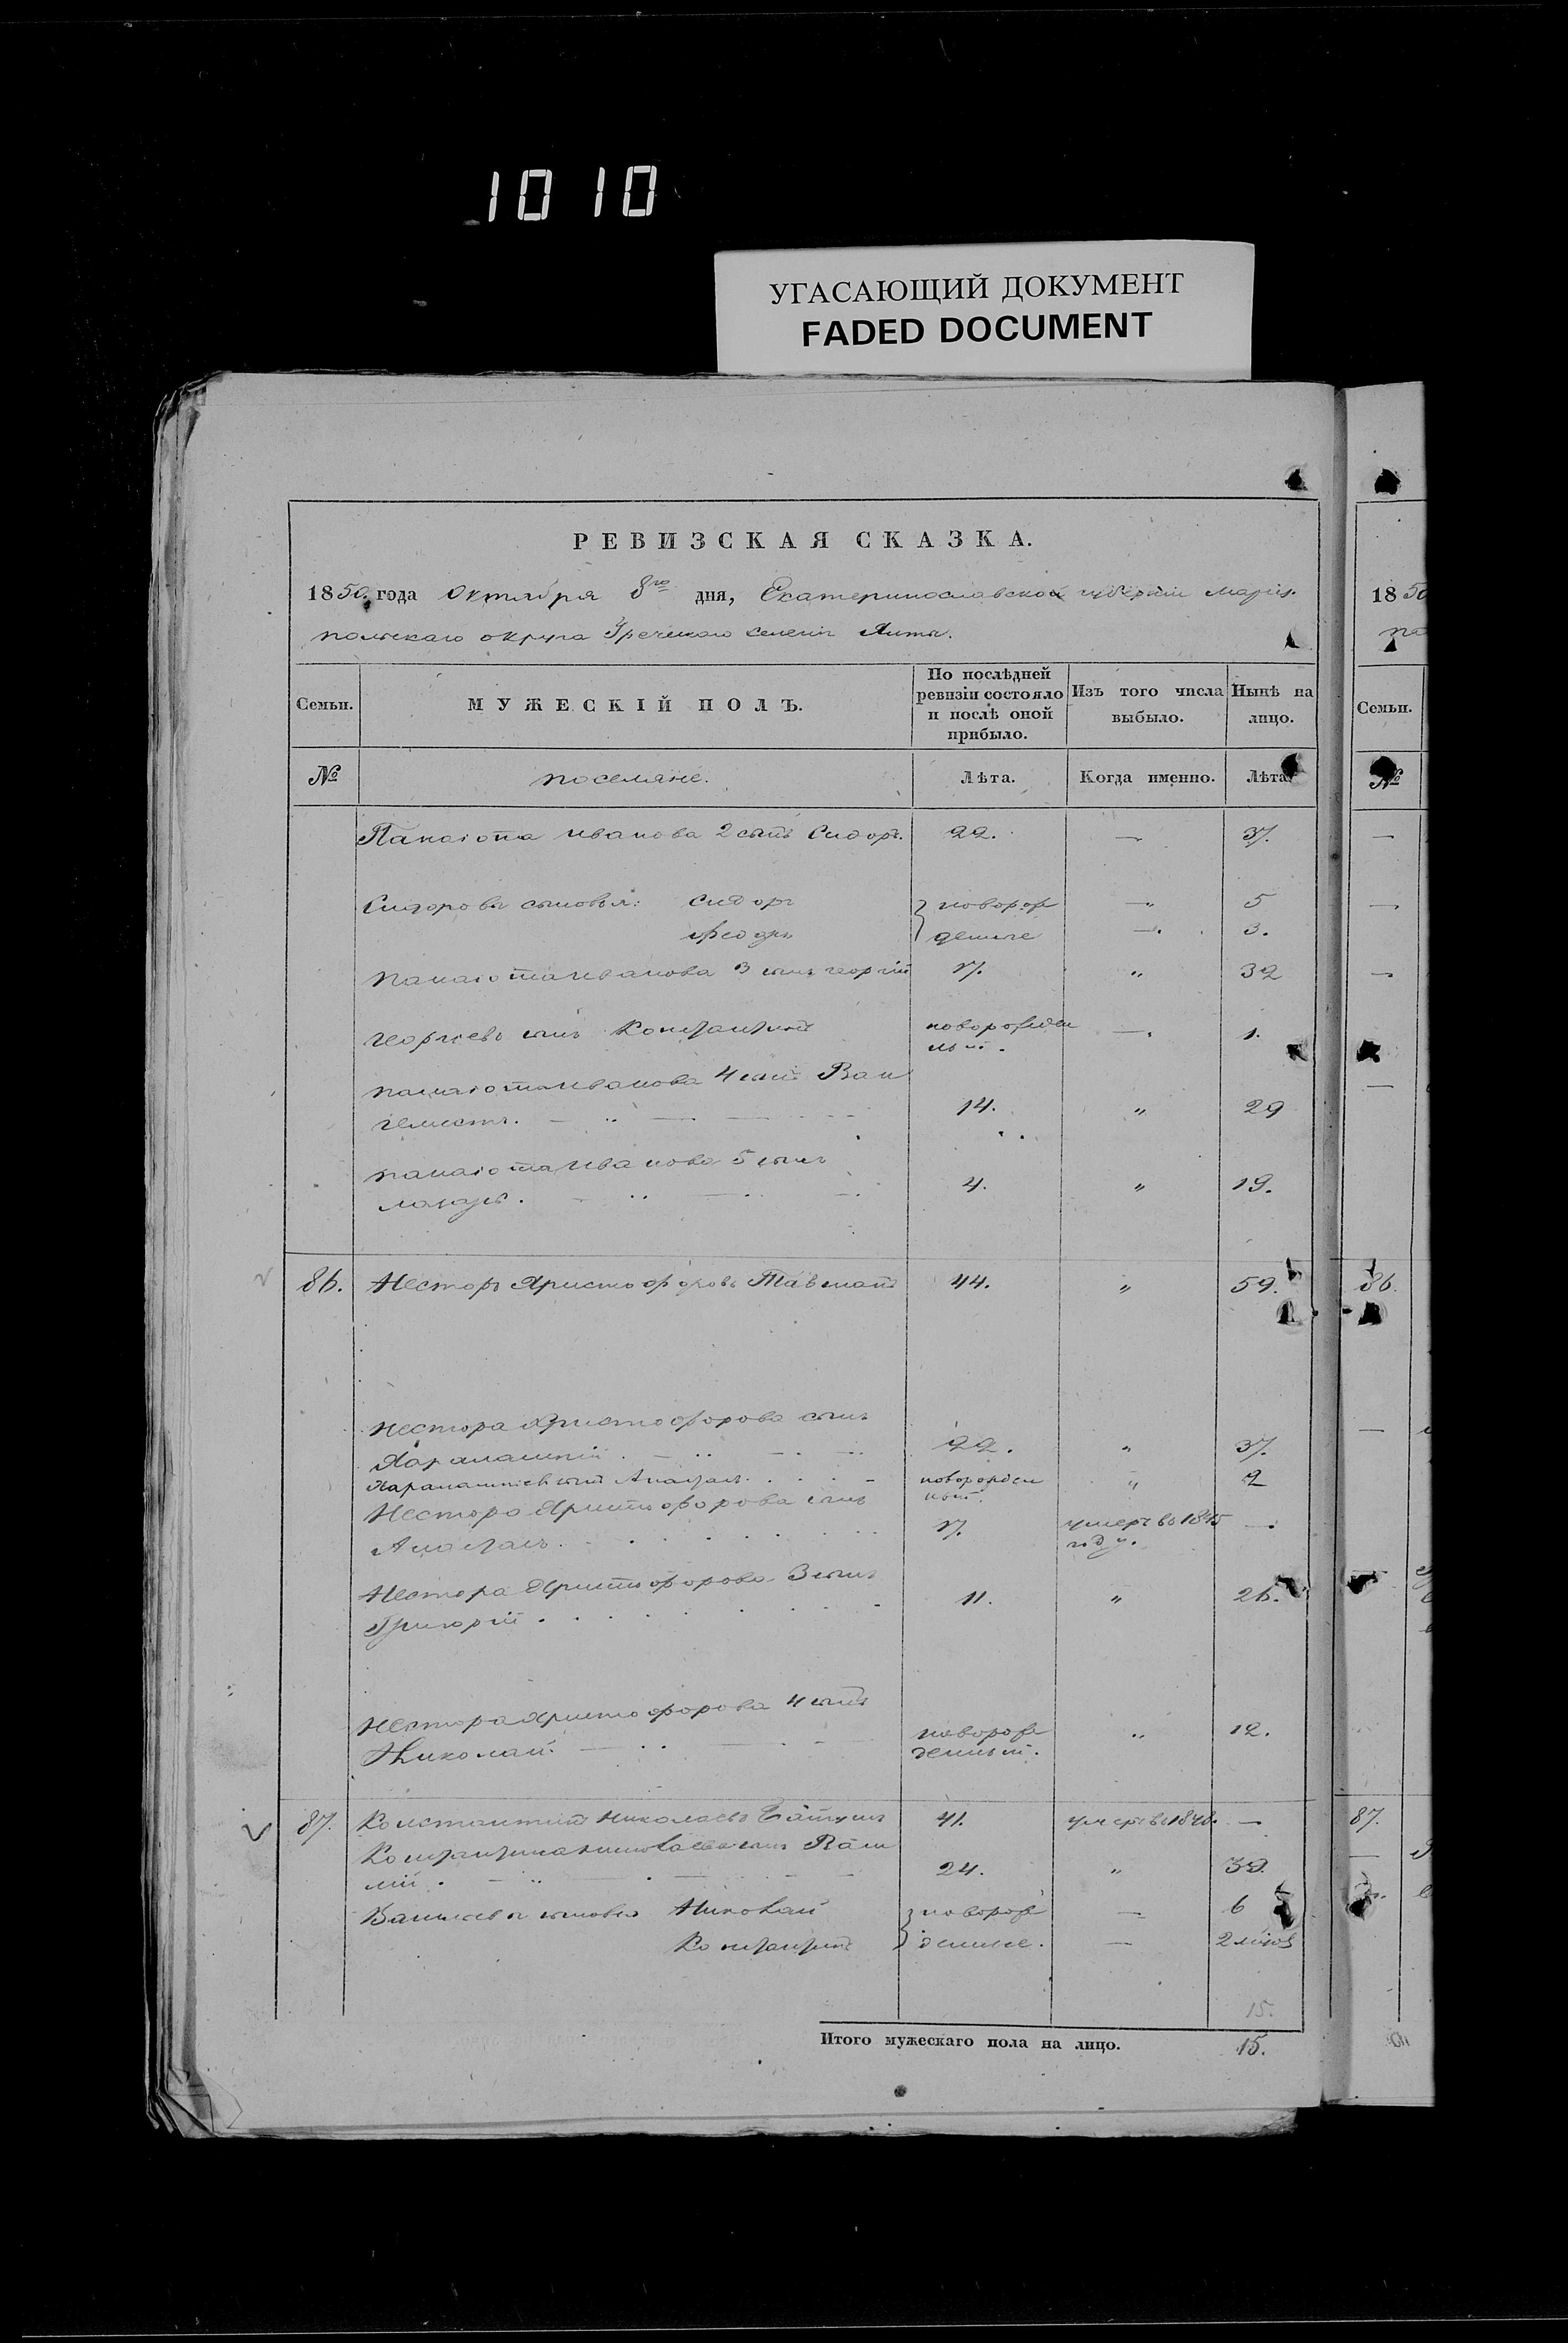 1010
УГАСАЮЩИЙ ДОКУМЕНТ
FADED DOCUMENT
РЕВИЗСКАЯ СКАЗКА.
1850 года Октября 8го дня, Екатеринославской губерніи Маріу-
польскаго округа Греческаго селенія Ялты.
Семьи. МУЖЕСКІЙ ПОЛЪ. По послѣдней ревизіи состояло и послѣ оной прибыло. Изъ того числа выбыло. Нынѣ на лицо.
№ поселяне. Лѣта. Когда именно. Лѣта.
Панаіота Иванова 2 сынъ Сидоръ. 22. — 37.
Сидоровы сыновья: Сидоръ } новорож — 5
Феодръ } денные — 3.
Панаіота Иванова 3 сынъ Георгій 17. " 32
Георгіевъ сынъ Константинъ новорожден — 1.
ный.
Панаіота Иванова 4 сынъ Ван
гелистъ. 14. " 29
Панаіота Иванова 5 сынъ
Лазарь. 4. " 19.
86. Несторъ Христофоровъ 44. " 59.
Нестора Христофорова сынъ
Харлампій. 22. " 37.
Харлампіевъ сынъ новорожден " 2
ный.
Нестора Христофорова сынъ
17. умеръ въ 1845 —
году.
Нестора Христофорова 3 сынъ
Григорій. 11. " 26.
Нестора Христофорова 4 сынъ
Николай. новорож " 12.
денный.
87. Константинъ Николаевъ 41. умеръ въ 1848. —
Константина Николаева сынъ Васи
лій. 24. " 39.
Васильевы сыновья Николай } новорож — 6
Константинъ } денные. — 2 мѣсяц
15.
Итого мужескаго пола на лицо. 15.
18 50
Семьи.
№
86.
87.